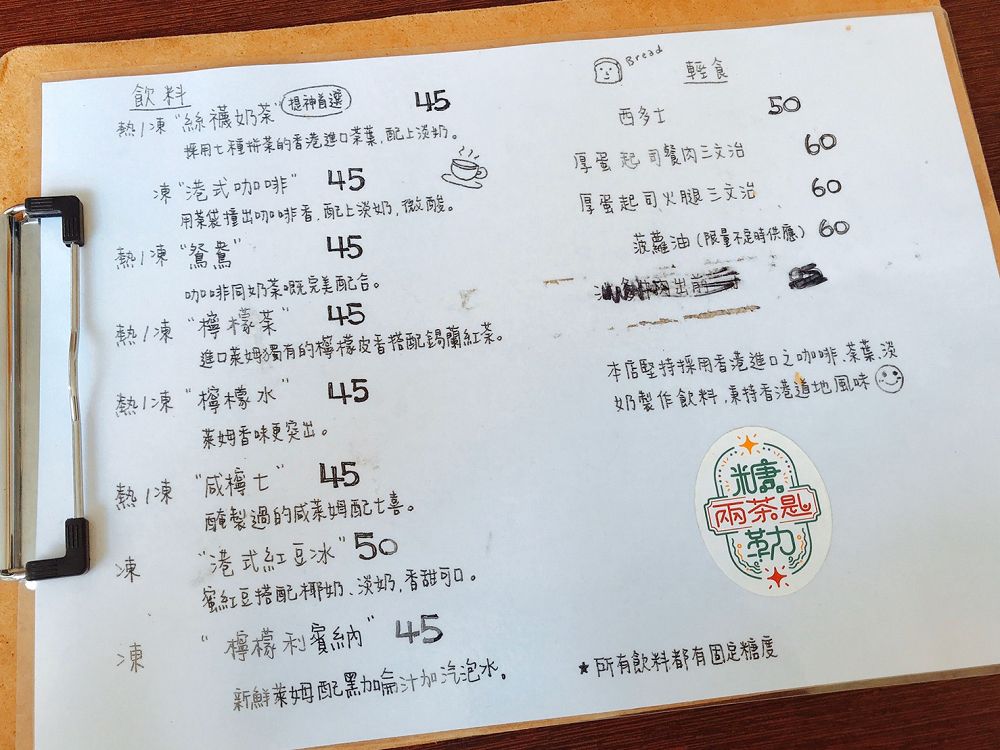 飲料
熱/凍 "絲襪奶茶" 提神首選 45
採用七種拼菜的香港進口茶葉,配上淡奶。
凍 "港式咖啡" 45
用茶袋撞出咖啡香,配上淡奶,微酸。
熱/凍 "鴛鴦" 45
咖啡同奶茶嘅完美配合。
熱/凍 "檸檬茶" 45
進口萊姆獨有的檸檬皮香搭配錫蘭紅茶。
熱/凍 "檸檬水" 45
萊姆香味更突出。
熱/凍 "咸檸七" 45
醃製過的咸萊姆配七喜。
凍 "港式紅豆冰" 50
蜜紅豆搭配椰奶、淡奶,香甜可口。
凍 "檸檬利賓納" 45
新鮮萊姆配黑加侖汁加汽泡水。
Bread 輕食
西多士 50
厚蛋起司餐肉三文治 60
厚蛋起司火腿三文治 60
菠蘿油(限量不定時供應) 60
本店堅持採用香港進口之咖啡、茶葉、淡
奶製作飲料,秉持香港道地風味
糖
兩茶匙
勒
★所有飲料都有固定糖度